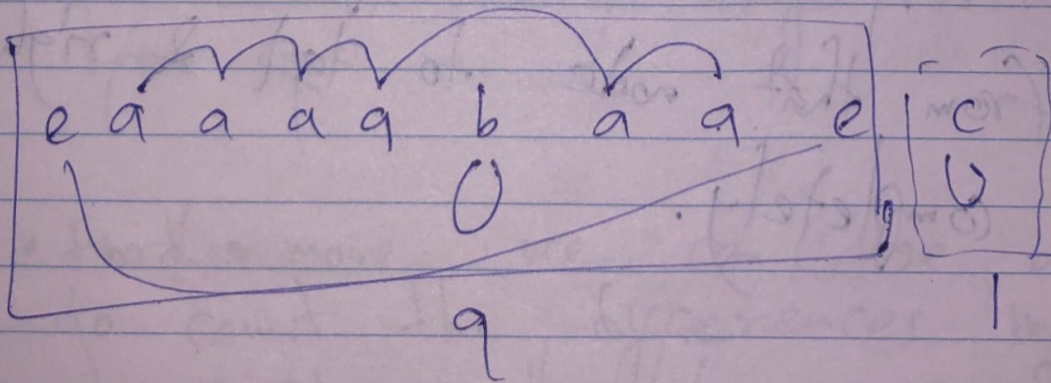 e a a a a b a a e , c
9 1